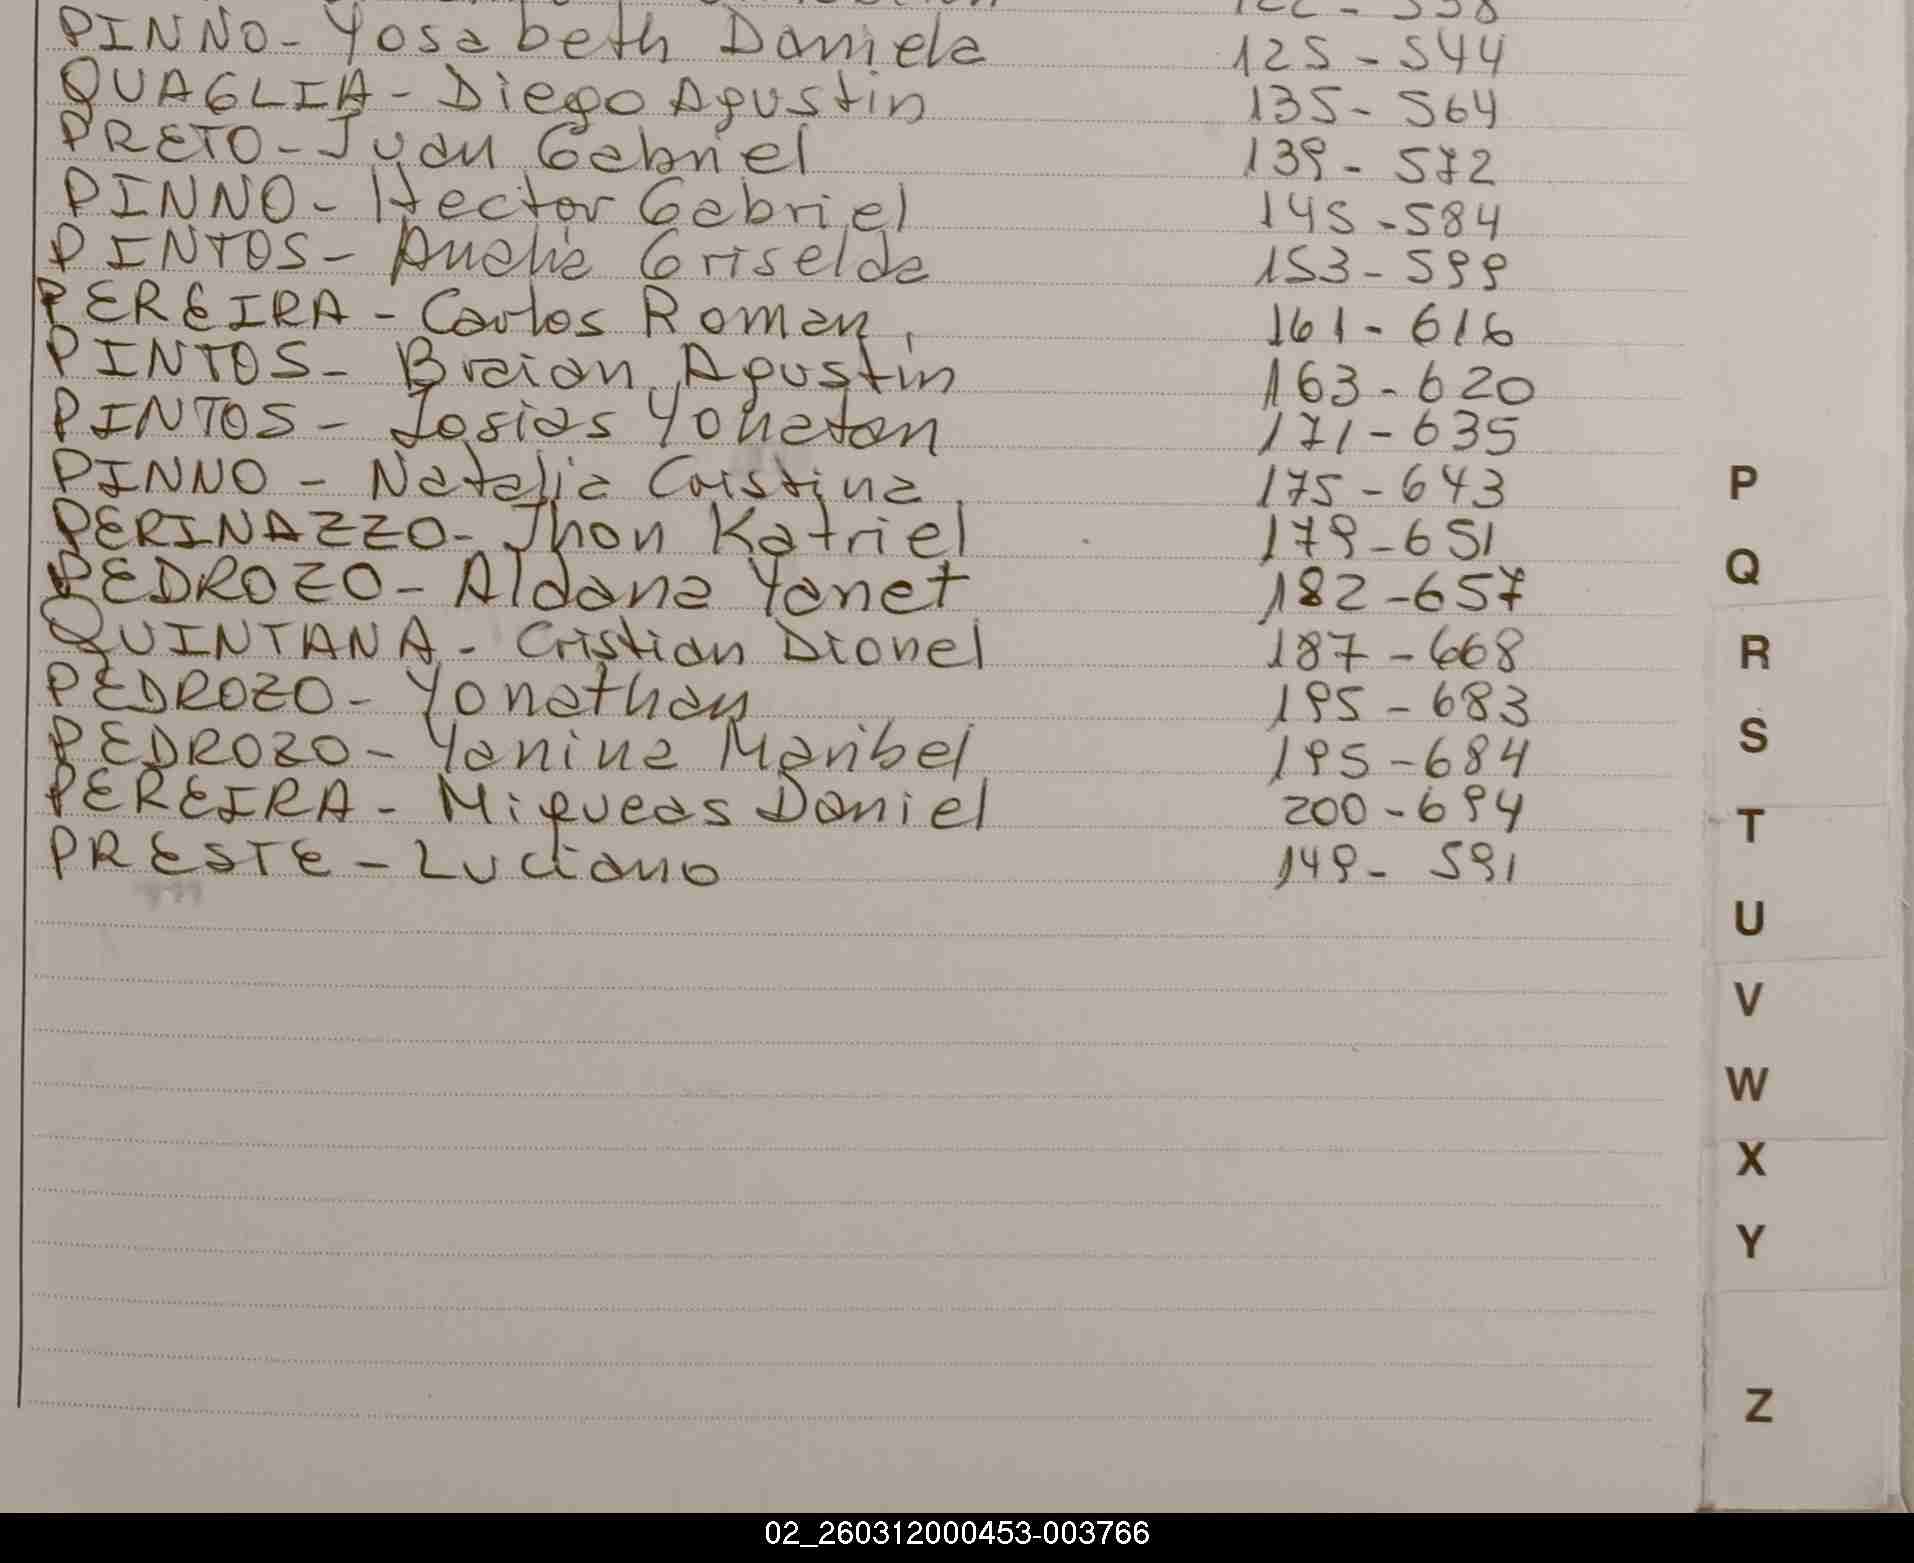 PINNO - Yosabeth Daniela 125 - 544
QUAGLIA - Diego Agustin 135 - 564
PRETO - Juan Gabriel 139 - 572
PINNO - Hector Gabriel 145 - 584
PINTOS - Analia Griselda 153 - 599
PEREIRA - Carlos Roman 161 - 616
PINTOS - Braian Agustín 163 - 620
PINTOS - Josias Yonatan 171 - 635
PINNO - Natalia Cristina 175 - 643
PERINAZZO - Jhon Katriel 179 - 651
PEDROZO - Aldana Yanet 182 - 657
QUINTANA - Cristian Dionel 187 - 668
PEDROZO - Yonathan 195 - 683
PEDROZO - Yanina Maribel 195 - 684
PEREIRA - Miqueas Daniel 200 - 694
PRESTE - Luciano 149 - 591
P
Q
R
S
T
U
V
W
X
Y
Z
02_260312000453-003766